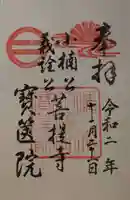 奉拝
令和二年
十二月二十日
小楠公
義詮公
菩提寺
寳筐院